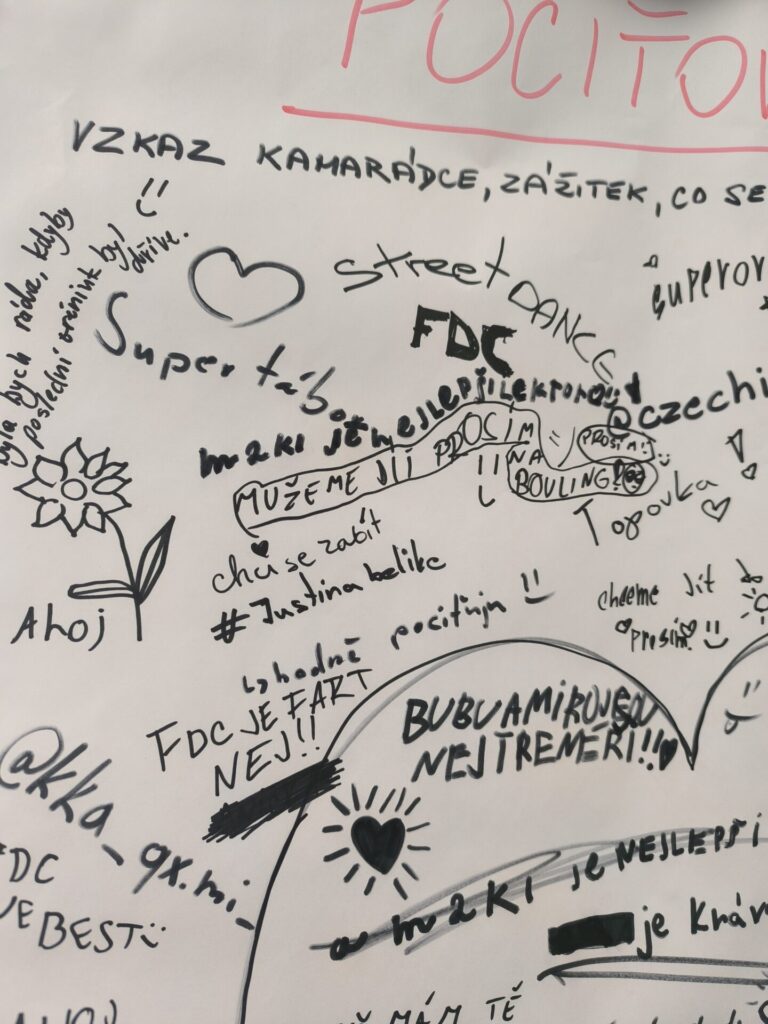 POCIŤOV
VZKAZ KAMARÁDCE, ZÁŽITEK, CO SE
byla bych ráda, kdyby
poslední trénink byl
dříve.
Street DANCE
FDC
superor
Super tábor
m2KI je nejlepší lektorka!!
@czechi
MUŽEME JÍT PROSÍM
NA
BOVLING?
PROSÍM!!
Topovka
chci se zabít
#Justinabelike
Ahoj
chceme Jít
prosím
hodně pociťuju
FDC JE FART
NEJ!!
BUBU A MIROJSOU
NEJTREMÉŘI!!
@kka_qx.mi_
FDC
JE BEST
a m2KI je NEJLEPŠÍ
je Kráv
AHOJ
MÁM TĚ